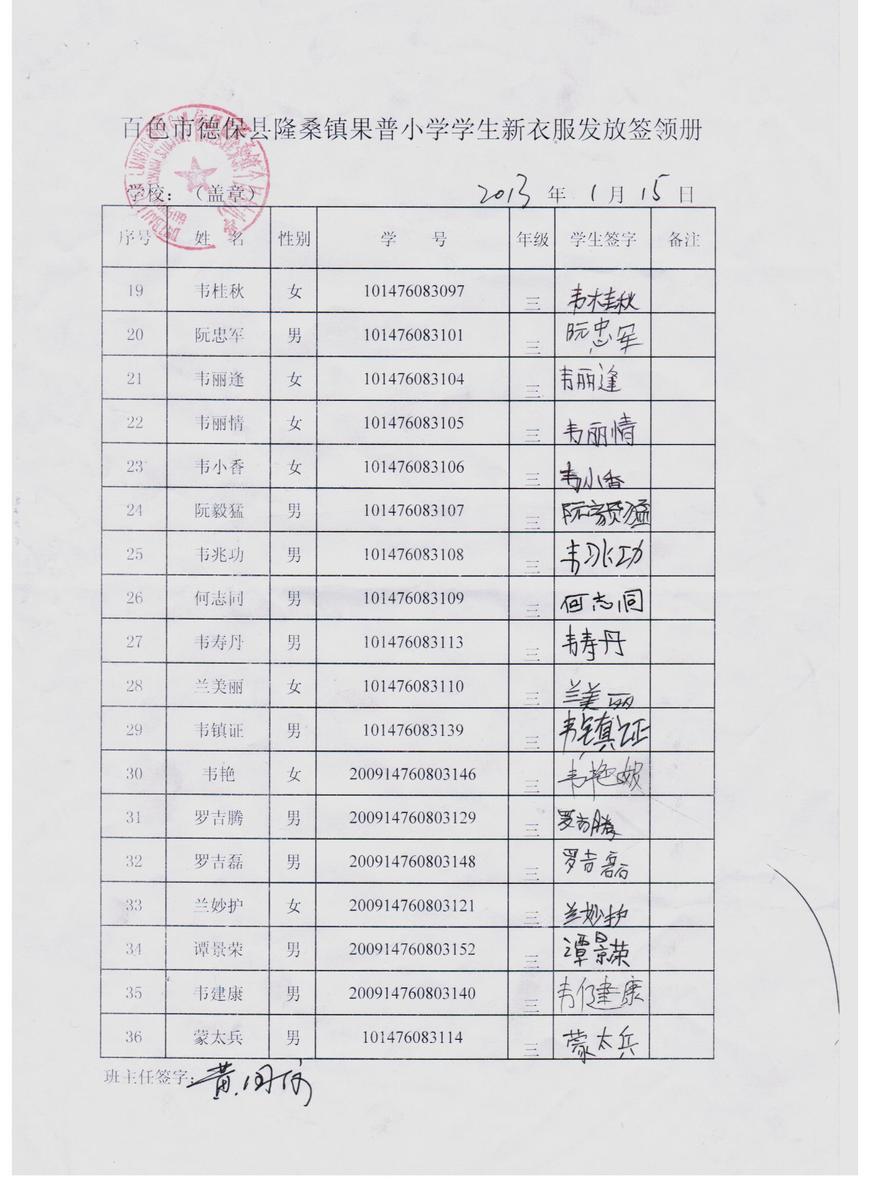 百色市德保县隆桑镇果普小学学生新衣服发放签领册
学校：（盖章） 2013 年 1 月 15 日
序号 姓 名 性别 学 号 年级 学生签字 备注
19 韦桂秋 女 101476083097 三 韦桂秋
20 阮忠军 男 101476083101 三 阮忠军
21 韦丽逢 女 101476083104 三 韦丽逢
22 韦丽情 女 101476083105 三 韦丽情
23 韦小香 女 101476083106 三 韦小香
24 阮毅猛 男 101476083107 三 阮毅猛
25 韦兆功 男 101476083108 三 韦兆功
26 何志同 男 101476083109 三 何志同
27 韦寿丹 男 101476083113 三 韦寿丹
28 兰美丽 女 101476083110 三 兰美丽
29 韦镇证 男 101476083139 三 韦镇证
30 韦艳 女 200914760803146 三 韦艳
31 罗吉腾 男 200914760803129 三 罗吉腾
32 罗吉磊 男 200914760803148 三 罗吉磊
33 兰妙护 女 200914760803121 三 兰妙护
34 谭景荣 男 200914760803152 三 谭景荣
35 韦建康 男 200914760803140 三 韦健康
36 蒙太兵 男 101476083114 三 蒙太兵
班主任签字：黄